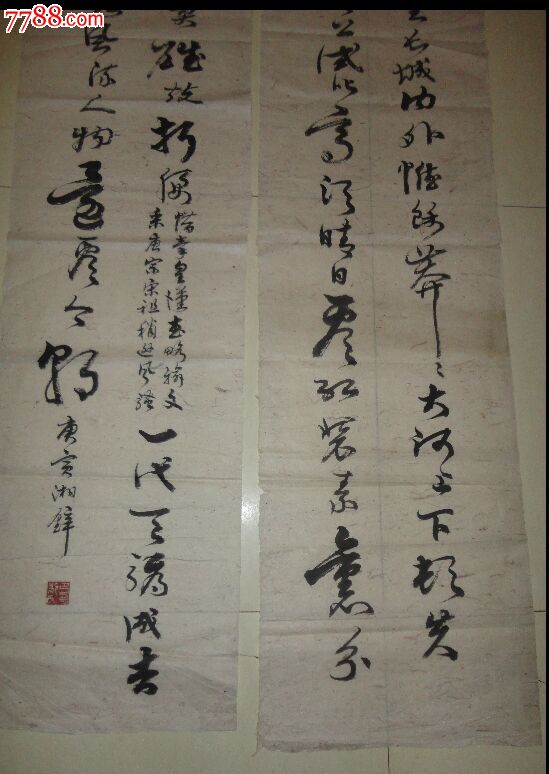 7788.com
望长城内外惟餘莽〻大河上下顿失
公试比高须晴日看红装素裹分
英雄竞折腰惜秦皇汉武略输文
采唐宗宋祖稍逊风骚一代天骄成吉
风流人物还看今朝
庚寅湘